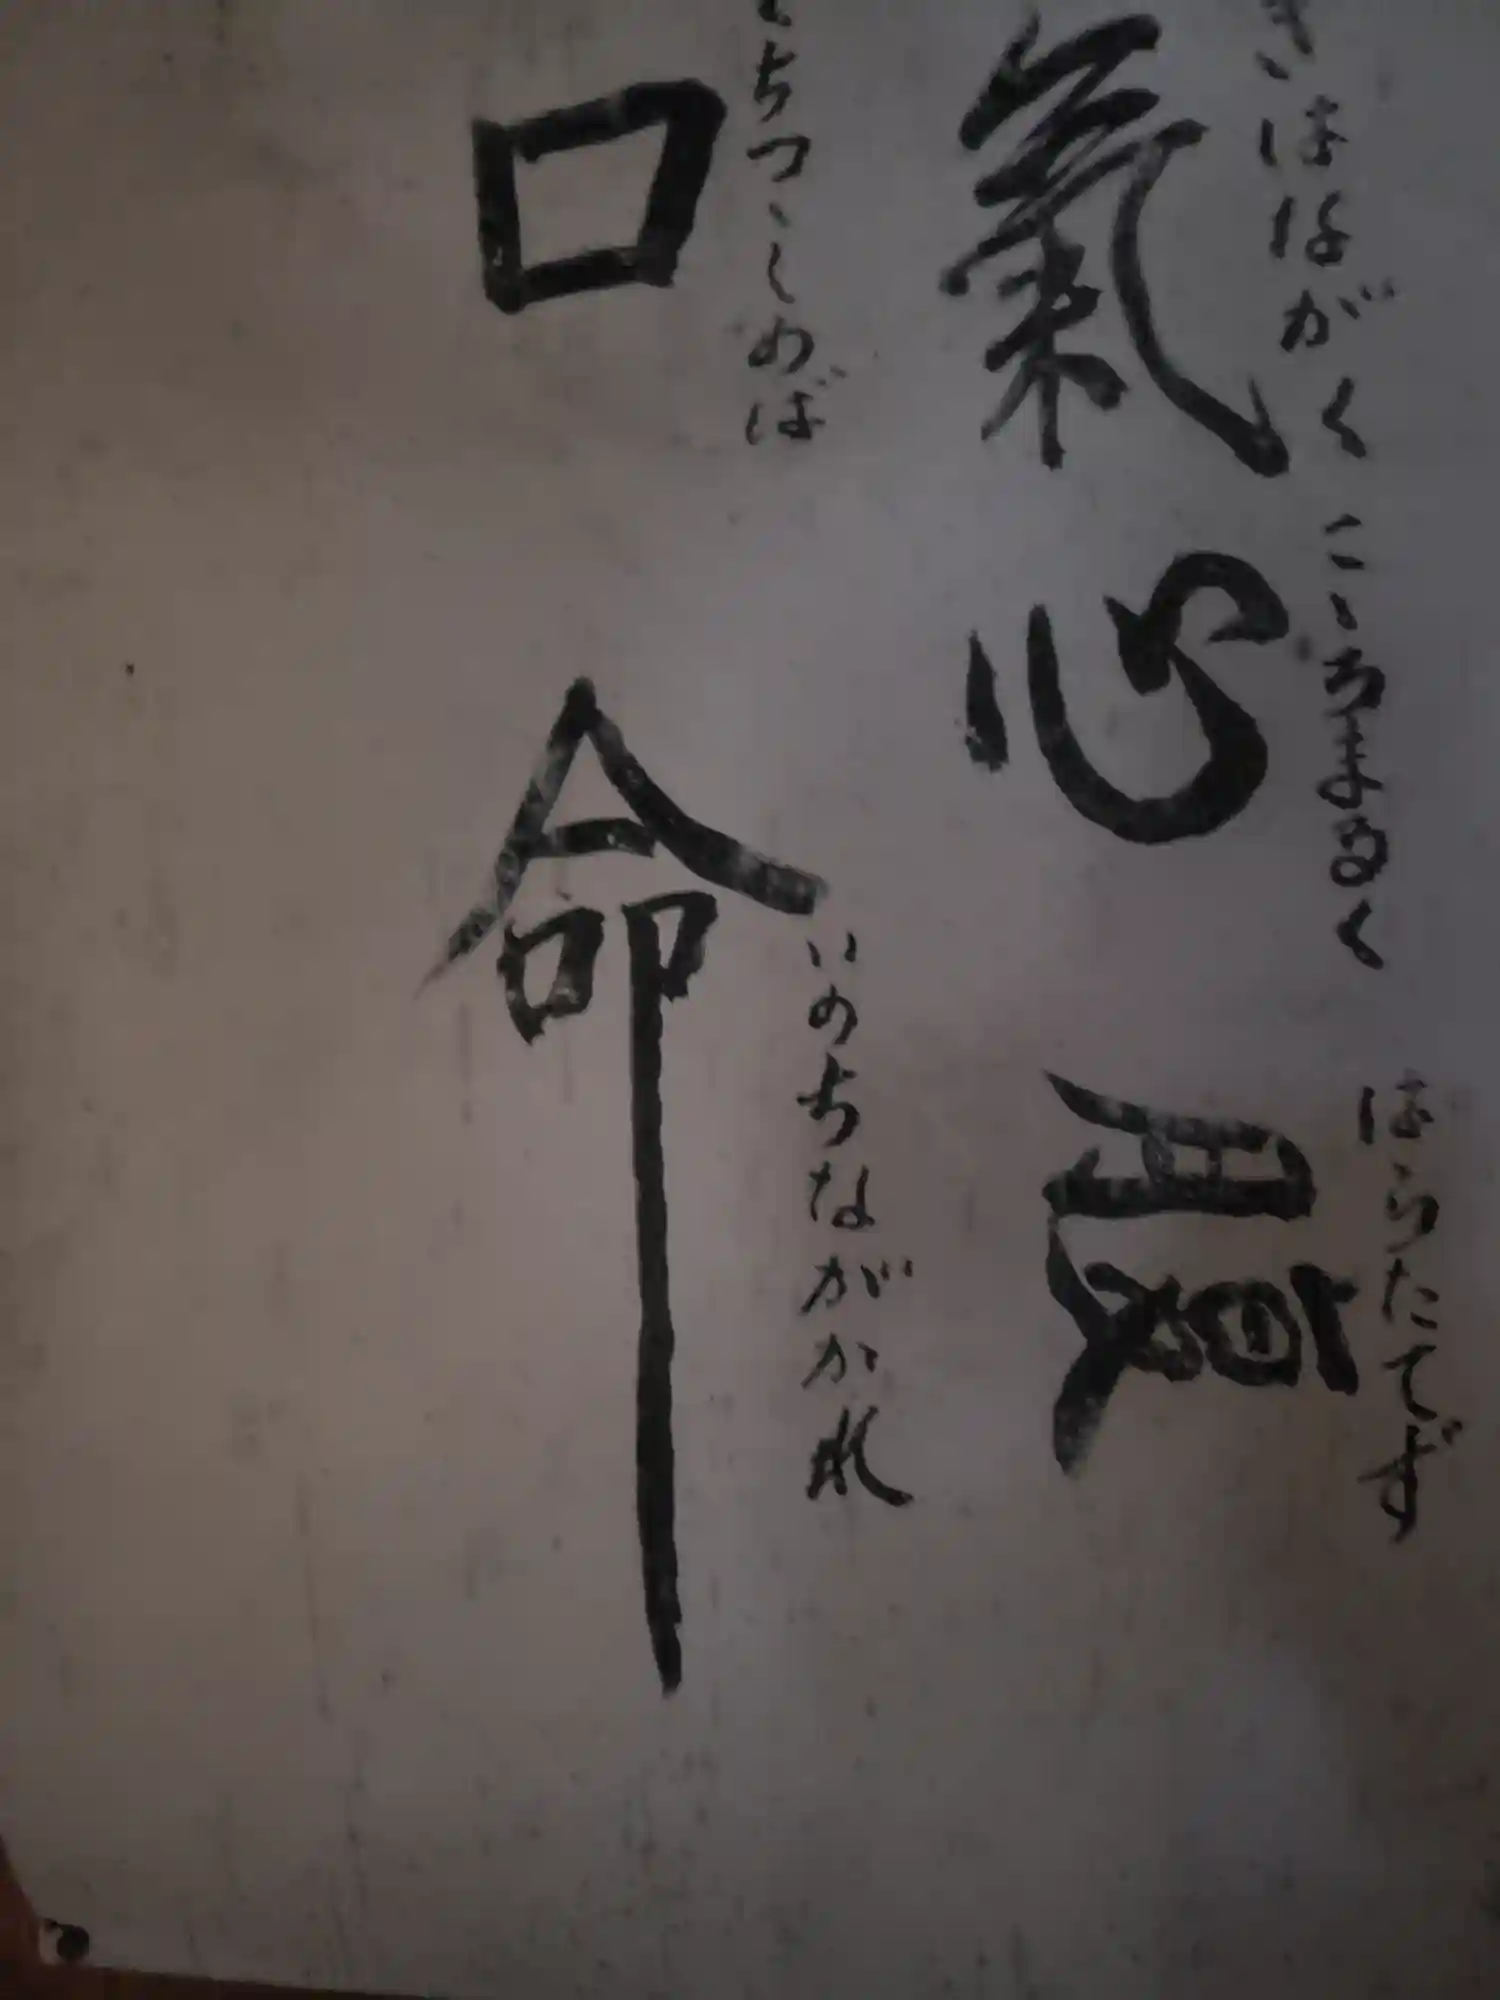 きはながく こゝろまるく はらたてず
氣 心 腹
くちつゝしめば いのちながかれ
口 命